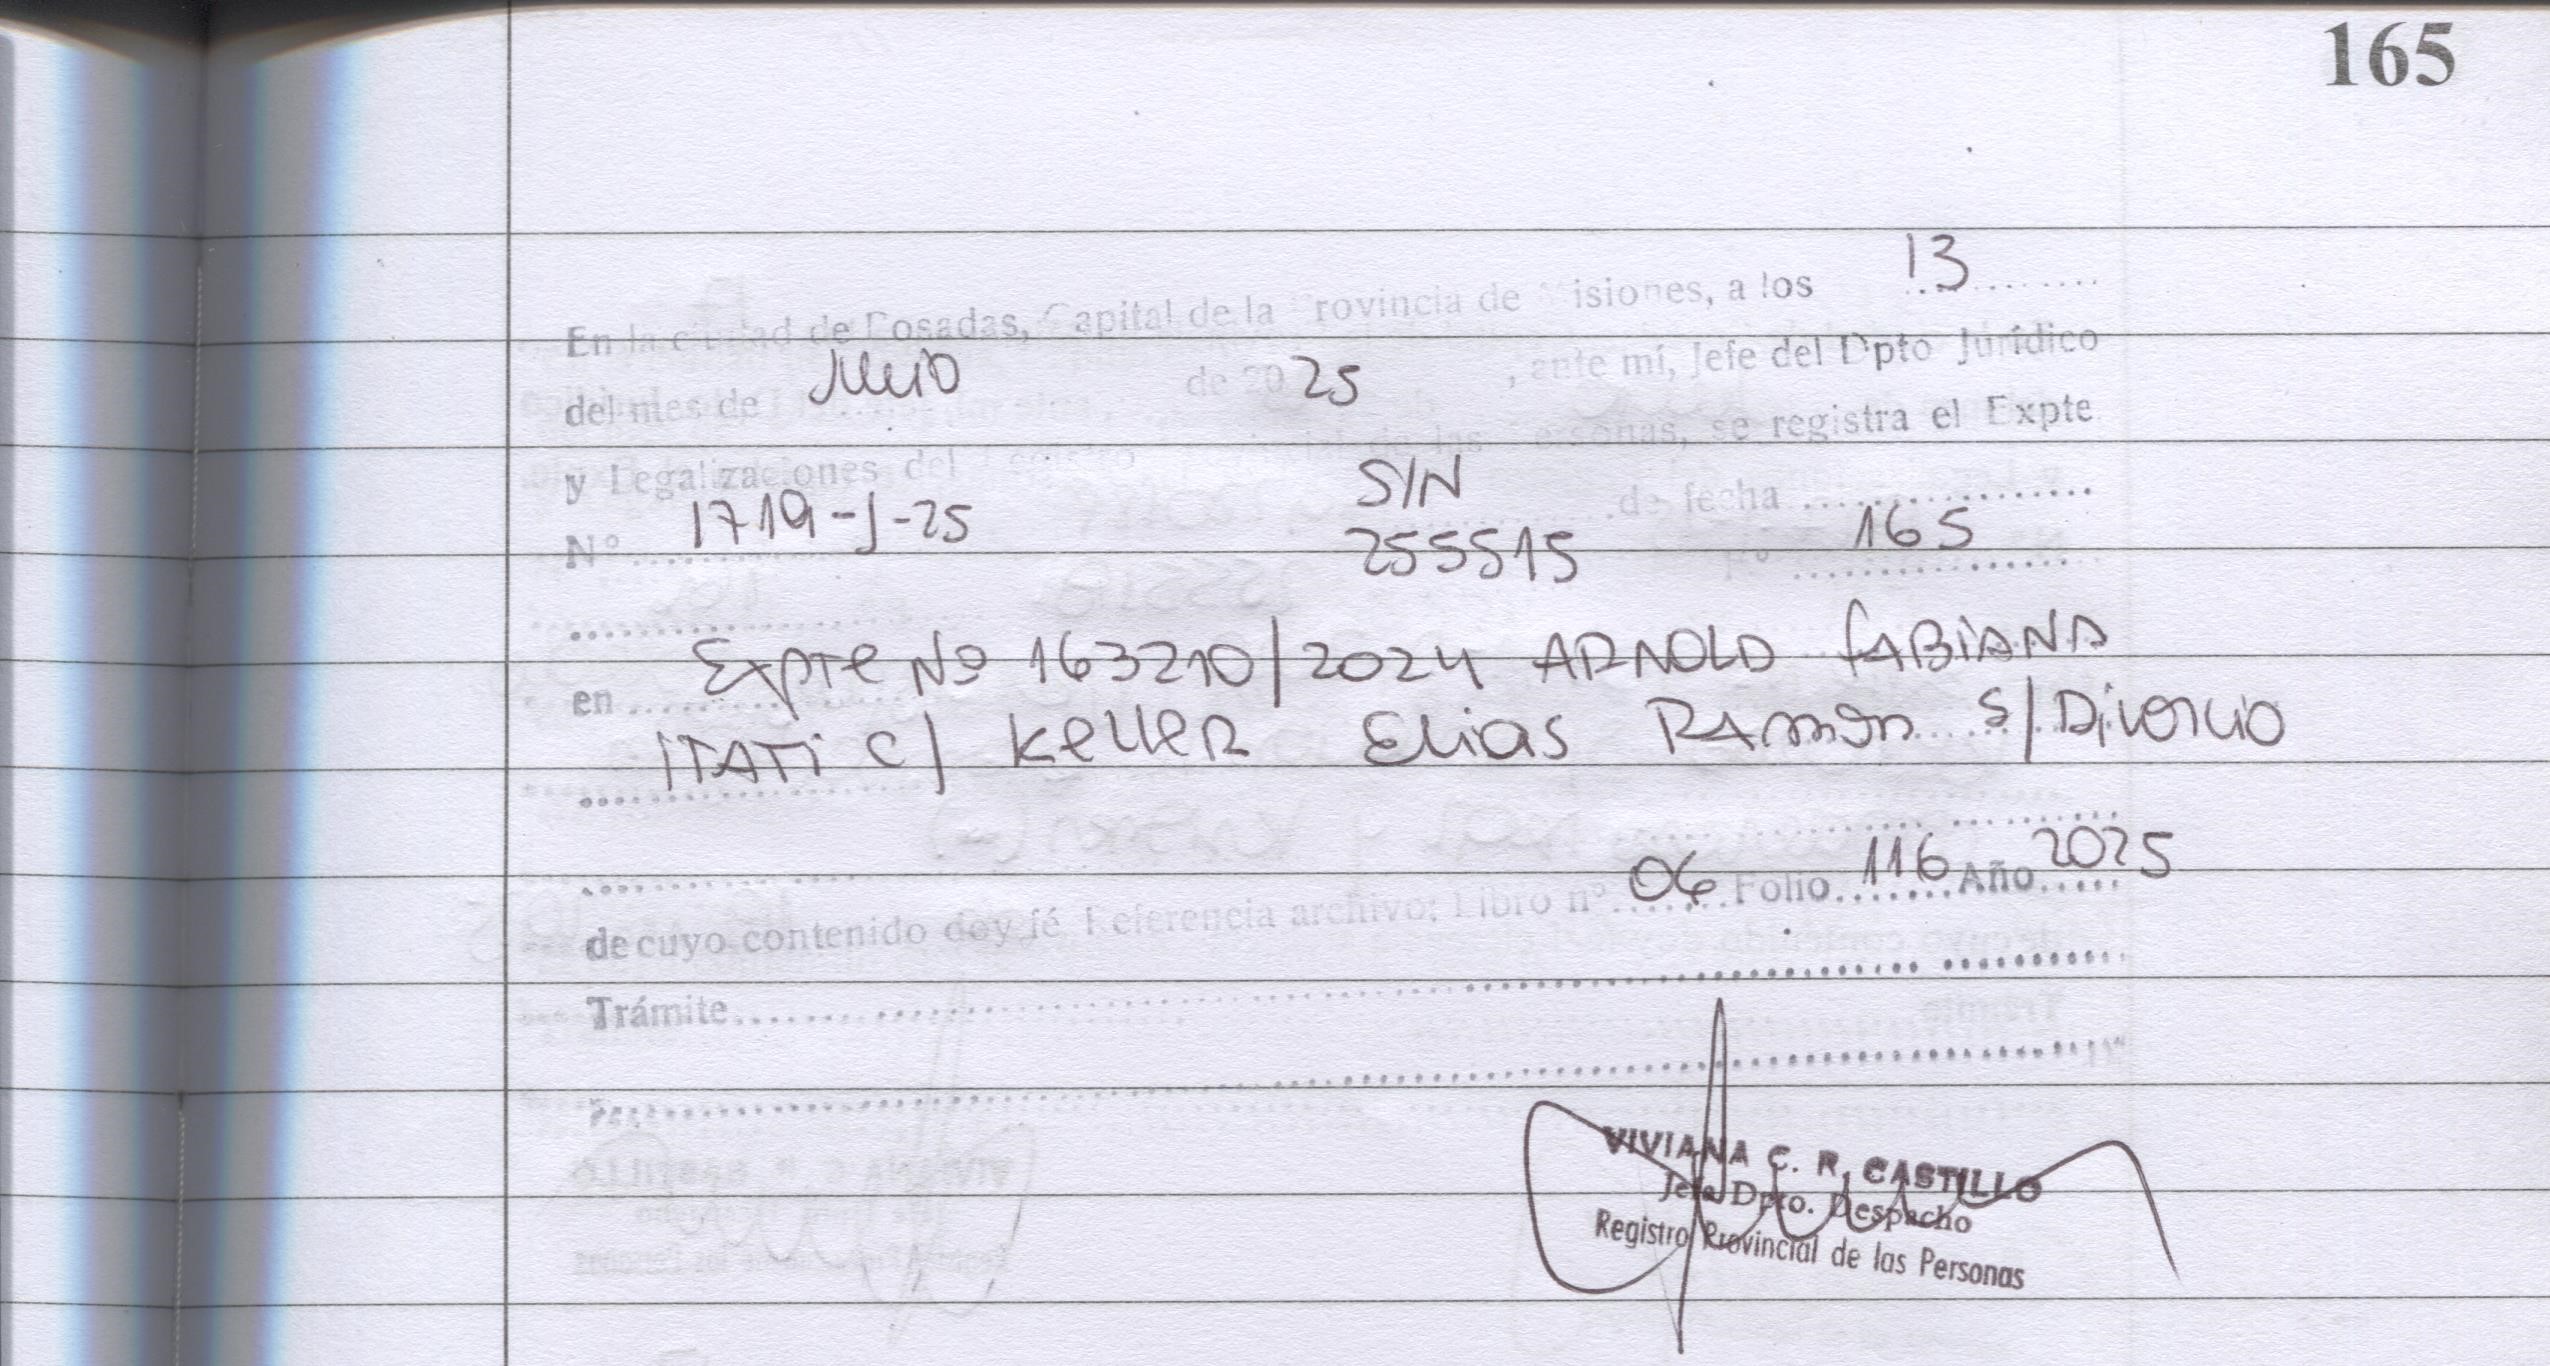 165
En la ciudad de Posadas, Capital de la Provincia de Misiones, a los 13
del mes de Junio de 20 25, ante mí, Jefe del Dpto Jurídico
y Legalizaciones del Registro Provincial de las Personas, se registra el Expte
Nº 1719-J-25 S/N de fecha
255515 Nº 165
en Expte Nº 163210/2024 ARNOLD FABIANA
ITATI C/ KELLER ELIAS RAMON S/ Divorcio
de cuyo contenido doy fé Referencia archivo: Libro nº 06 Folio 116 Año 2025
Trámite
VIVIANA C. R. CASTILLO
Jefa Dpto. Despacho
Registro Provincial de las Personas